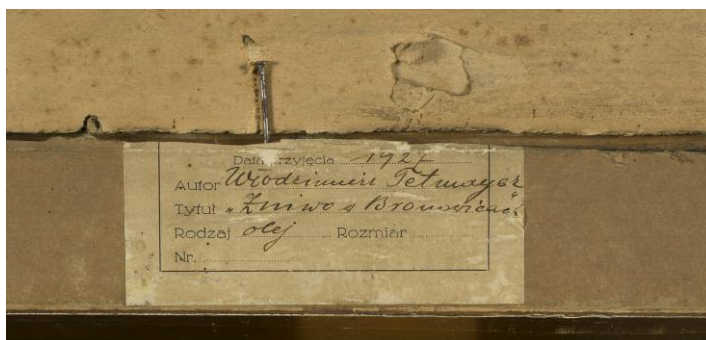 Data przyjęcia 192
Autor Włodzimierz Tetmayer
Tytuł „Żniwo w Bronowicach"
Rodzaj olej Rozmiar
Nr.